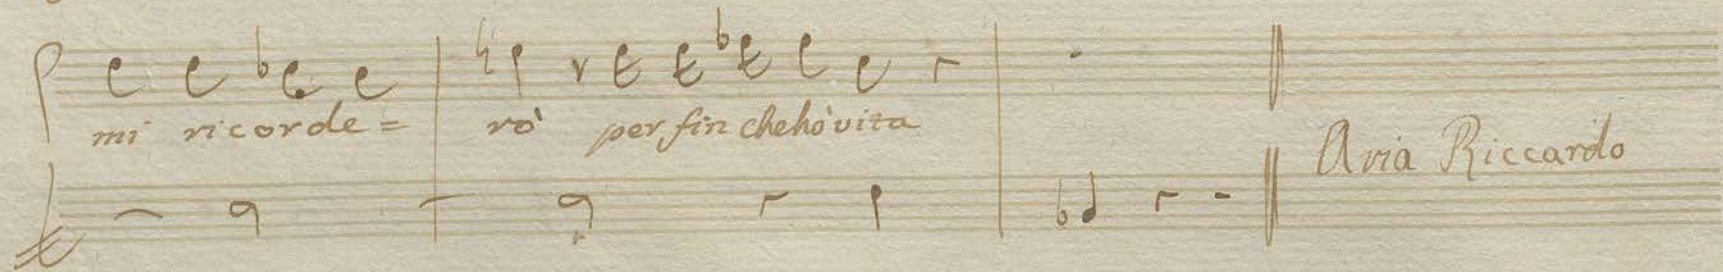 mi ricorde= rò per fin che hò vita
Aria Riccardo